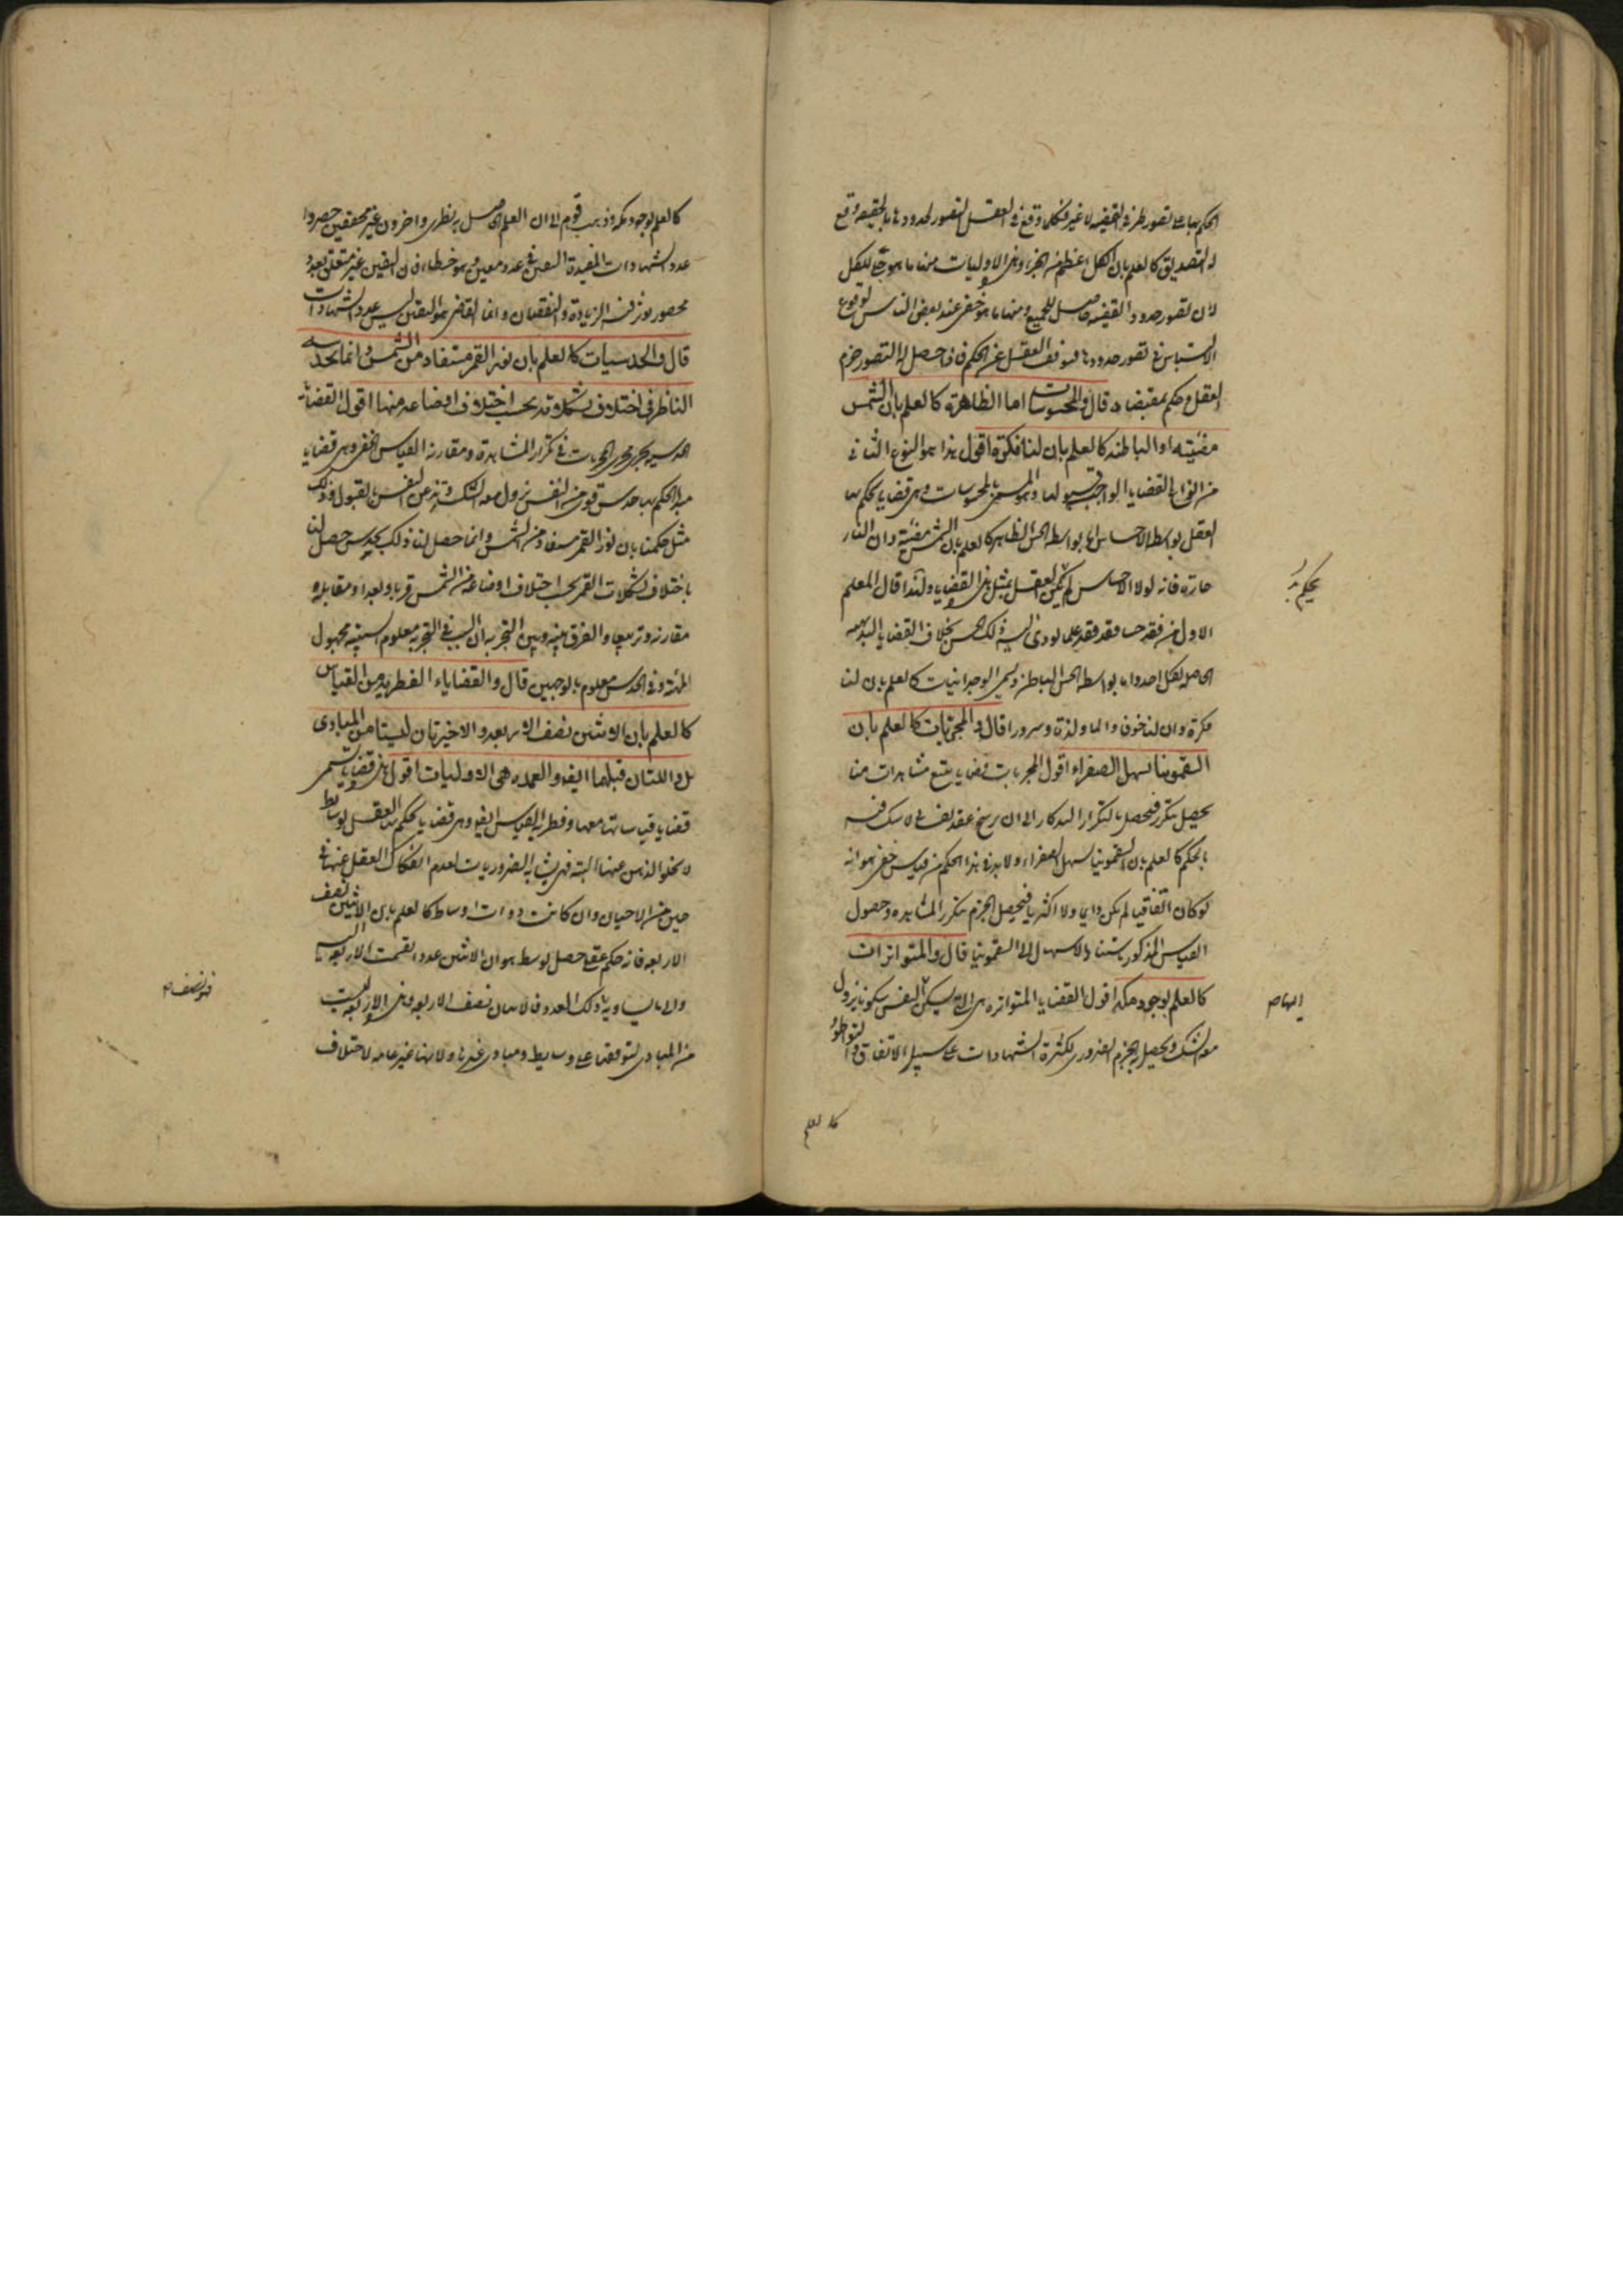 الحكم بها على تصور طرفي القضية لا غير فكلما وقع في العقل التصور لحدودها بالحقيقة وقع
له التصديق كالعلم بان الكل اعظم من الجزء وهذه الاوليات منها ما هو جلي للكل
لان تصور حدود القضية حاصل للجميع ومنها ما هو خفي عند بعض الناس لوقوع
الالتباس في تصور حدودها فيتوقف العقل عن الحكم فاذا حصل له التصور جزم
العقل وحكم بمقتضاه قال والمحسوسات اما الظاهرة كالعلم بان الشمس
مضيئة او الباطنة كالعلم بان لنا فكرة اقول هذا هو النوع الثاني
من انواع القضايا الواجب قبولها وهو المسمى بالمحسوسات وهي قضايا يحكم بها
العقل بواسطة الاحساس اما بواسطة الحس الظاهر كالعلم بان الشمس مضيئة وان النار
حارة فانه لولا الاحساس لم يحكم العقل بمثل هذه القضايا ولهذا قال المعلم
الاول من فقد حسا فقد فقد علما يودي اليه ذلك الحس بخلاف القضايا البديهية
الحاصلة لكل احد واما بواسطة الحس الباطن ويسمى الوجدانيات كالعلم بان لنا
فكرة وان لنا خوفا والما ولذة وسرورا قال والمجربات كالعلم بان
السقمونيا مسهل الصفراء اقول المجربات قضايا يتبع مشاهدات منا
يحصل بتكرر فيحصل بالتكرار التذكار الى ان يرسخ عقد لا شك فيه
بالحكم كالعلم بان السقمونيا مسهل الصفراء ولا بد في هذا الحكم من قياس خفي هو انه
لو كان اتفاقيا لم يكن دايما ولا اكثريا فيحصل الجزم بتكرر المشاهدة وحصول
القياس المذكور باستناد الاسهال الى السقمونيا قال والمتواترات
كالعلم بوجود مكة اقول القضايا المتواترة هي التي يسكن اليها النفس سكونا يزول
معه الشك ويحصل به الجزم الضروري لكثرة الشهادات على سبيل الاتفاق والتواطؤ
كالعلم
كالعلم بوجود مكة وذهب قوم الى ان العلم الحاصل به نظري واخرون غير محققين حصروا
عدد الشهادات المفيدة لليقين في عدد معين وهو خطاء فان اليقين غير متعلق بعدد
محصور يوثر فيه الزيادة والنقصان وانما القاضي هو اليقين ليس عدد الشهادات
قال والحدسيات كالعلم بان نور القمر مستفاد من الشمس وانما يحدسه
الناظر في اختلاف تشكلاته بحسب اختلاف اوضاعه منها اقول القضايا
الحدسية يجري مجرى المجربات في تكرار المشاهدة ومقارنة القياس الخفي وهي قضايا
مبدا الحكم بها حدس قوي من النفس يزول معه الشك وتذعن النفس بالقبول وذلك
مثل حكمنا بان نور القمر مستفاد من الشمس وانما حصل لنا ذلك بحدس حصل لنا
باختلاف تشكلات القمر بحسب اختلاف اوضاعه من الشمس قربا وبعدا ومقابلة
مقارنة وتربيعا والفرق بينه وبين التجربة ان السبب في التجربة معلوم السببية مجهول
الماهية وفي الحدس معلوم بالوجهين قال والقضايا الفطرية من القياس
كالعلم بان الاثنين نصف الاربعة والاخيرتان ليستا من المبادي
بل واللتان قبلهما ايضا والعمدة هي الاوليات اقول هذه قضايا تسمى
قضايا قياساتها معها وفطرية القياس ايضا وهي قضايا يحكم بها العقل بوسايط
لا يخلوا الذهن عنها البتة فهي يشابه الضروريات لعدم انفكاك العقل عنها في
حين من الاحيان وان كانت ذوات اوساط كالعلم بان الاثنين نصف
الاربعة فانه حكم عقلي حصل بوسط هو ان الاثنين عدد انقسمت الاربعة اليه
والى ما يساويه وذلك العدد فالاثنان نصف الاربعة وهذه الاربعة ليست
من المبادي لتوقفها على وسايط ومبادي غيرها ولانها غير عامة لاختلاف
يحكم بذ
اليها صح
فهو نصفه